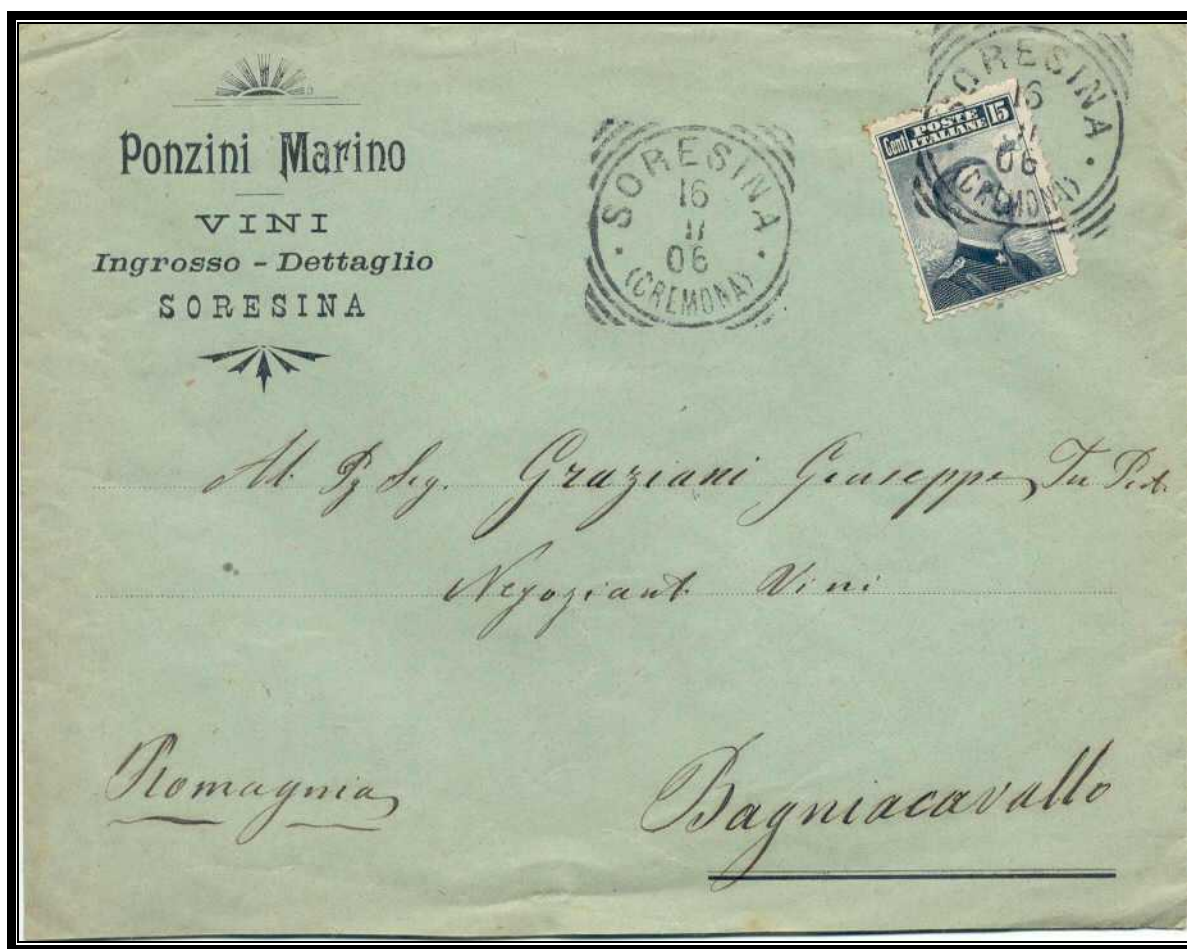 Ponzini Marino
VINI
Ingrosso - Dettaglio
SORESINA
SORESINA
16
11
06
(CREMONA)
SORESINA
16
11
06
(CREMONA)
Cent POSTE ITALIANE 15
Al Pg Sig. Graziani Giuseppe Fu
Negoziant Vini
Romagnia
Bagniacavallo